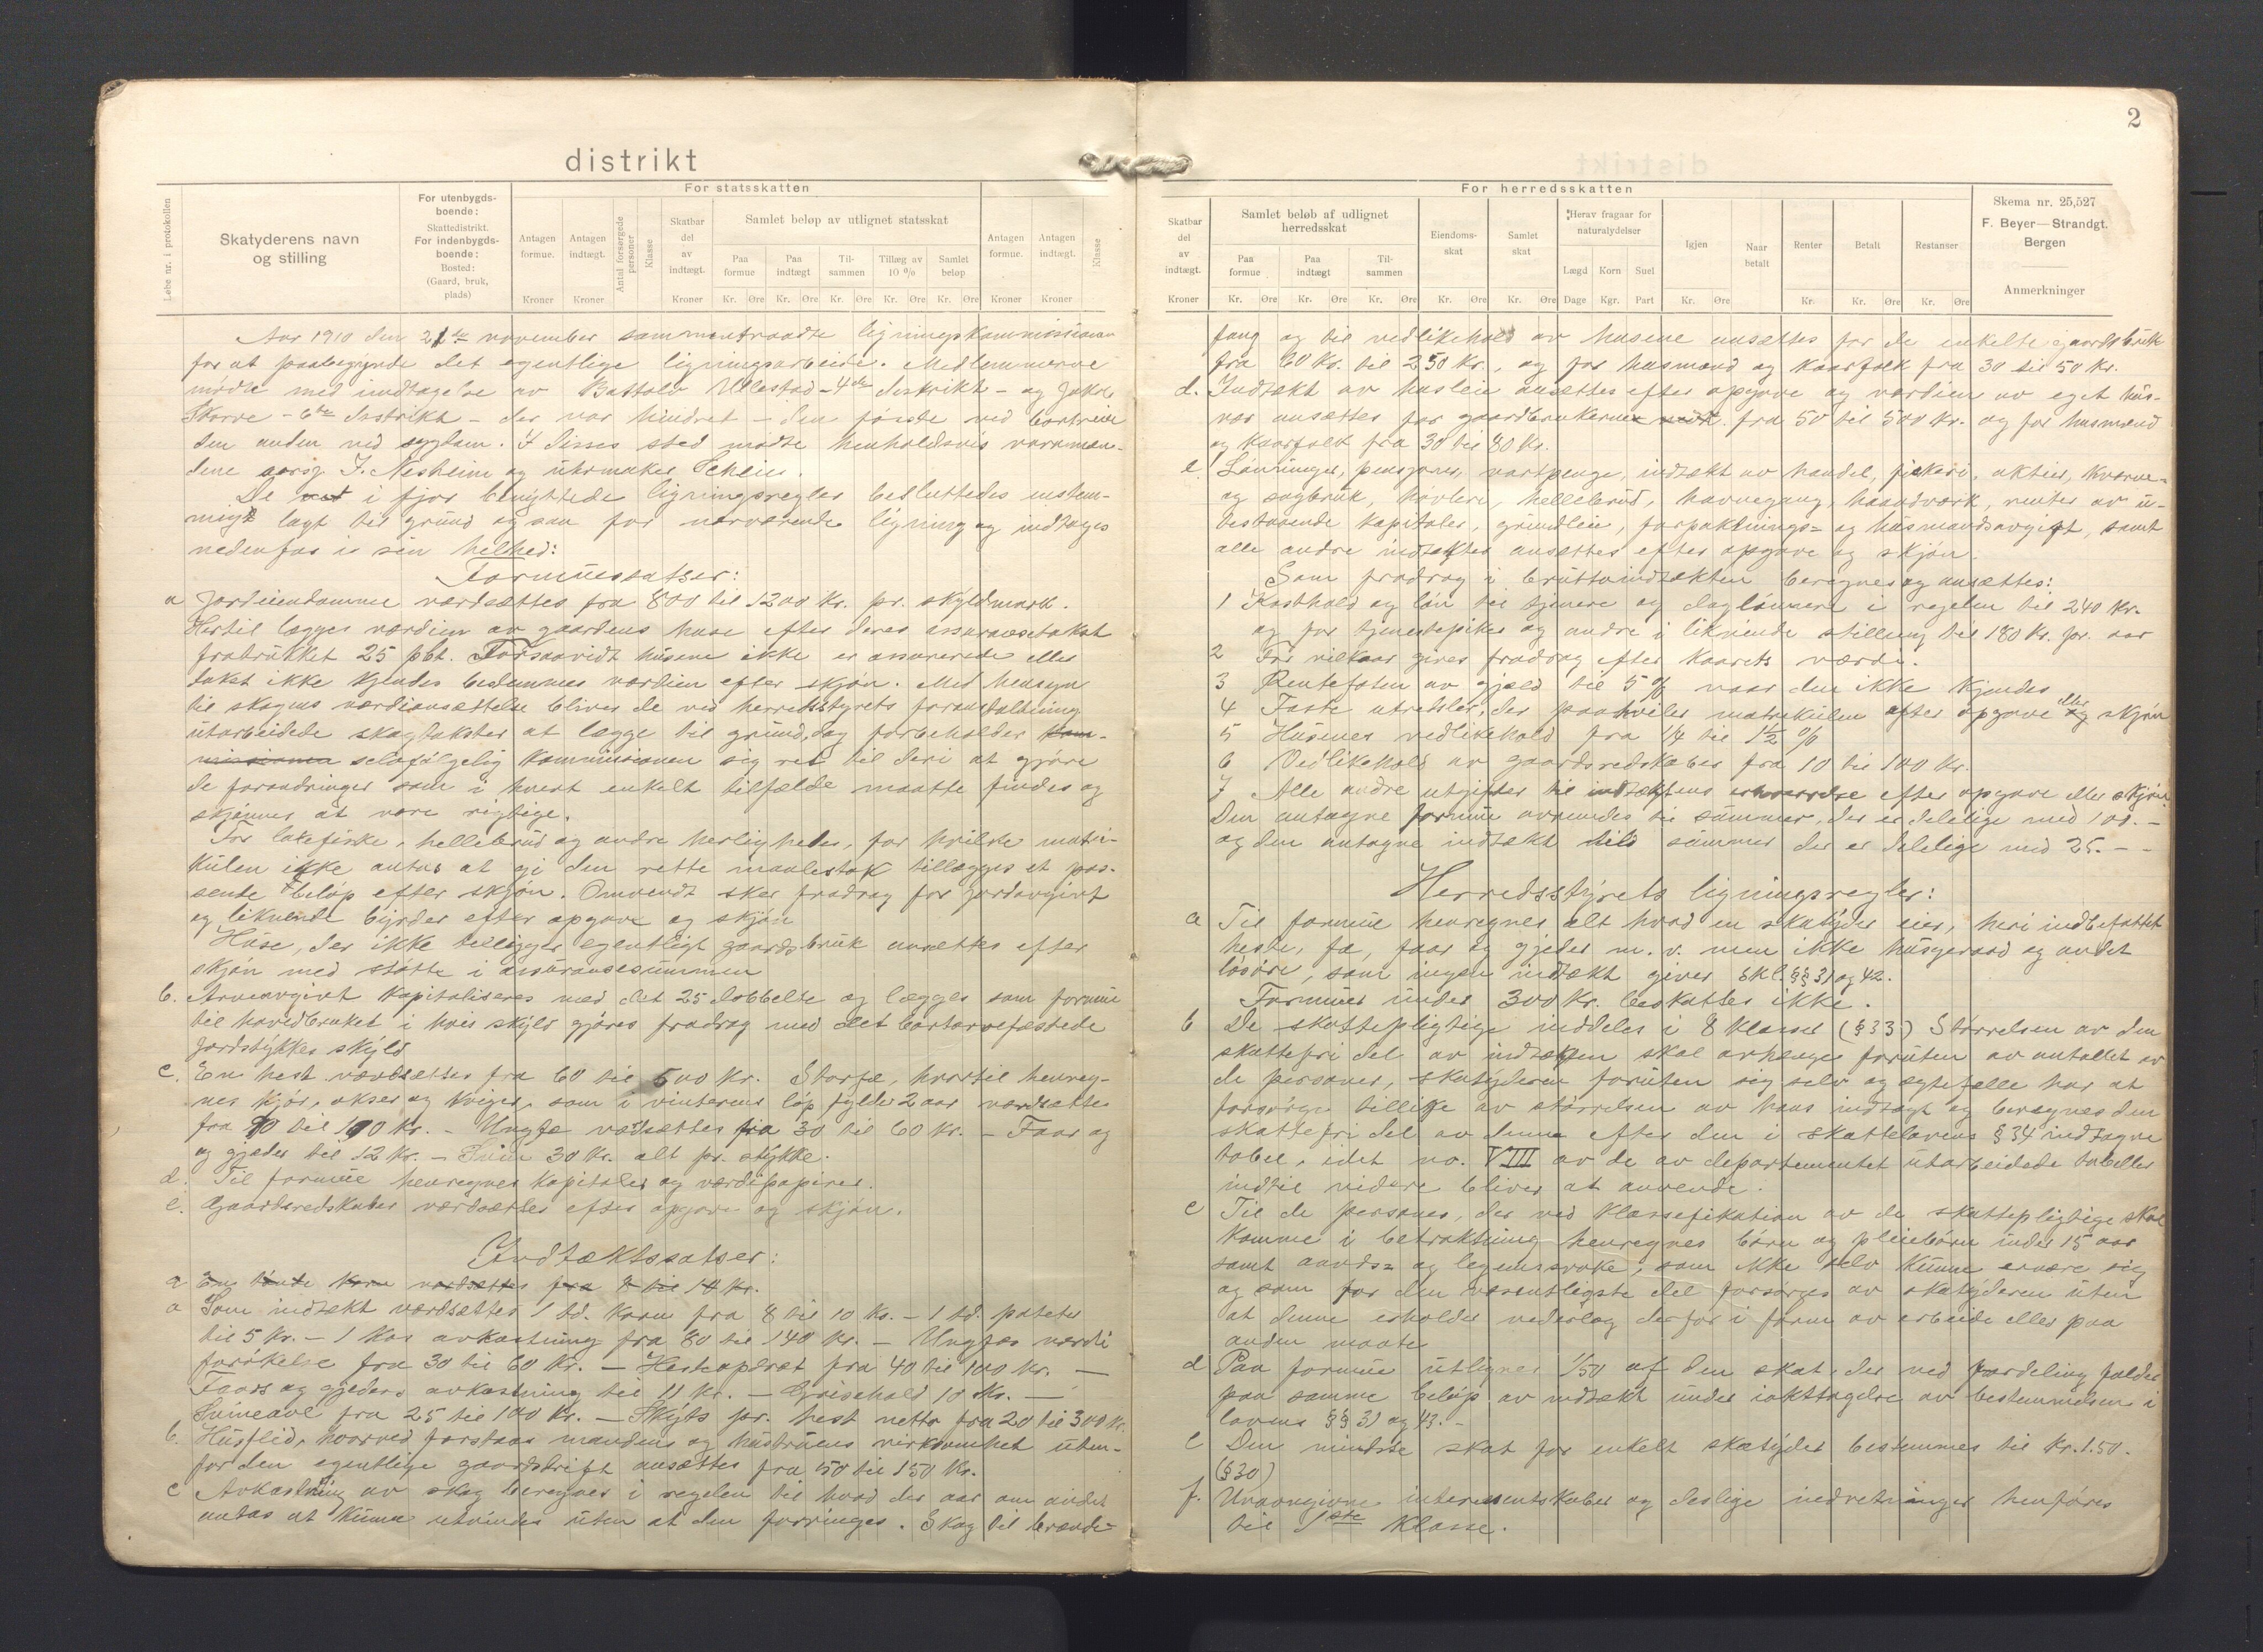 distrikt
Løbe nr. i protokollen
Skatyderens navn og stilling
For utenbygdsboende:
Skattedistrikt.
For indenbygdsboende:
Bosted:
(Gaard, bruk, plads)
For statsskatten
Antagen formue. Kroner
Antagen indtægt. Kroner
Antal forsørgede personer
Klasse
Skatbar del av indtægt. Kroner
Samlet beløp av utlignet statsskat
Paa formue Kr. Øre
Paa indtægt Kr. Øre
Tilsammen Kr. Øre
Tillæg av 10 % Kr. Øre
Samlet beløp Kr. Øre
Antagen formue. Kroner
Antagen indtægt. Kroner
Klasse
Aar 1910 den 21de november sammentraadte ligningskommissionen
for at paabegynde det egentlige ligningsarbeide. Medlemmerne
mødte med indtagelse av Battolv Ullestad - 4de distrikt - og Jakob
Skorve - 6te distrikt - der var hindret - den første ved bortreise
den anden ved sygdom. I disses sted mødte henholdsvis varamæn-
dene I. Nesheim og uhrmaker Schleis.
De i fjor benyttede ligningsregler besluttedes enstem-
migt lagt til grund ogsaa for nærværende ligning og indtages
nedenfor i sin helhed:
Formuessatser:
a Jordeiendomme værdsættes fra 800 til 1200 Kr. pr. skyldmark.
Hertil lægges værdien av gaardens huse efter deres assurancetakst
fratrukket 25 pct. Forsaavidt husene ikke er assurerede eller
takst ikke kjendes bestemmes værdien efter skjøn. Med hensyn
til skogens værdiansættelse bliver de ved herredsstyrets foranstaltning
utarbeidede skogtakster at lægge til grund, dog forbeholder kom-
missionen selvfølgelig kommissionen sig ret til deri at gjøre
de forandringer som i hvert enkelt tilfælde maatte findes og
skjønnes at være rigtige.
For laksefiske, hellebrud og andre herligheder, for hvilke matri-
kulen ikke antas at gi den rette maalestok tillægges et pas-
sende beløp efter skjøn. Omvendt sker fradrag for jordavgivt
og liknende byrder efter opgave og skjøn
Huse, der ikke tilligger egentligt gaardsbruk ansættes efter
skjøn med støtte i assurancesummen
b. Arveavgivt kapitaliseres med det 25 dobbelte og lægges som formue
til hovedbruket i hvis skyld gjøres fradrag med det bortarvefæstede
jordstykkes skyld
c. En hest værdsættes fra 60 til 500 Kr. Storfæ, hvortil henreg-
nes kjør, okser og kviger, som i vinterens løp fylder 2 aar værdsættes
fra 70 til 100 Kr. - Ungfæ værdsættes fra 30 til 60 Kr. - Faar og
og gjeder til 12 Kr. - Sviin 30 Kr. alt pr. stykke.
d. Til formue henregnes kapitaler og værdipapirer.
e. Gaardsredskaber værdsættes efter opgave og skjøn.
Indtæktssatser:
a En tønde korn værdsættes fra 8 til 10 Kr.
a Som indtækt værdsættes 1 td. korn fra 8 til 10 Kr. - 1 td. poteter
til 5 Kr. - 1 kos avkastning fra 80 til 140 Kr. - Ungfæs værdi
forøkelse fra 30 til 60 Kr. - Hesteopdræt fra 40 til 100 Kr. -
Faars og gjeders avkastning til 11 Kr. - Grisehold 10 Kr. -
Svineavl fra 25 til 100 Kr. - Skyds pr. hest netto fra 20 til 300 Kr.
b. Husflid, hvorved forstaaes mandens og hustruens virksomhet uten-
for den egentlige gaardsdrift ansættes fra 50 til 150 Kr.
c Avkastning av skog beregnes i regelen til hvad der aar om andet
antas at kunne utvindes uten at den forringes. Skog til brænde-
2
For herredsskatten
Skatbar del av indtægt. Kroner
Samlet beløb af udlignet herredsskat
Paa formue Kr. Øre
Paa indtægt Kr. Øre
Tilsammen Kr. Øre
Eiendomsskat Kr. Øre
Samlet skat Kr. Øre
Herav fragaar for naturalydelser
Lægd Dage
Korn Kgr.
Suel Part
Igjen Kr. Øre
Naar betalt
Renter Kr.
Betalt Kr. Øre
Restanser Kr. Øre
Skema nr. 25,527
F. Beyer—Strandgt.
Bergen
Anmerkninger
fang og til vedlikehold av husene ansættes for de enkelte gaardsbruk
fra 60 Kr. til 250 Kr., og for husmænd og kaarfolk fra 30 til 50 Kr.
d. Indtækt av husleie ansættes efter opgave og værdien av eget hus-
vær ansættes for gaardbrukerne fra 50 til 500 Kr. og for husmænd
og kaarfolk fra 30 til 80 Kr.
e Lønninger, pensjoner, vartpenge, indtækt av handel, fiskeri, aktier, kværne-
og sagbruk, høvleri, hellebrud, havnegang, haandværk, renter av u-
testaaende kapitaler, grundleie, forpaktnings- og husmandsavgift, samt
alle andre indtækter ansættes efter opgave og skjøn.
Som fradrag i bruttoindtækten beregnes og ansættes:
1 Kosthold og løn til tjenere og daglønnere i regelen til 240 Kr.
og for tjenestepiker og andre i liknende stilling til 180 Kr. pr. aar
2 For vilkaar gives fradrag efter kaarets værdi.
3 Rentefoten av gjæld til 5 % naar den ikke kjendes
4 Faste utredsler, der paahviler matrikulen efter opgave eller og skjøn
5 Husenes vedlikehold fra 1/4 til 1 1/2 %
6 Vedlikehold av gaardsredskaber fra 10 til 100 Kr.
7 Alle andre utgifter til indtæktens erhvervelse efter opgave eller skjøn
Den antagne formue avrundes til summer, der er delelige med 100.-
og den antagne indtækt til summer der er delelige med 25.--
Herredsstyrets ligningsregler:
a Til formue henregnes alt hvad en skatyder eier, heri indbefattet
heste, fæ, faar og gjeder m. v. men ikke husgeraad og andet
løsøre, som ingen indtækt giver Skl. §§ 31 og 42.
Formuer under 300 Kr. beskattes ikke.
b De skattepligtige inddeles i 8 klasser (§ 33) Størrelsen av den
skattefri del av indtækten skal avhænge foruten av antallet av
de personer, skatyderen foruten sig selv og egtefælle har at
forsørge tillike av størrelsen av hans indtægt og beregnes den
skattefri del av denne efter den i skattelovens § 34 indtagne
tabel, idet no. VIII av de av departementet utarbeidede tabeller
indtil videre bliver at anvende.
c Til de personer, der ved klassefikation av de skattepligtige skal
komme i betraktning henregnes børn og pleiebørn under 15 aar
samt aands- og legemssvake, som ikke selv kunne ernære sig
og som for den væsentligste del forsørges av skatyderen uten
at denne erholder vederlag derfor i form av arbeide eller paa
anden maate
d Paa formue utlignes 1/50 af den skat, der ved fordeling falder
paa samme beløp av indtækt under iakttagelse av bestemmelserne i
lovens §§ 31 og 43.-
e Den mindste skat for enkelt skatyder bestemmes til Kr. 1.50.
(§ 30)
f. Unavngivne interessentskaber og deslige indretninger henføres
til 1ste klasse.